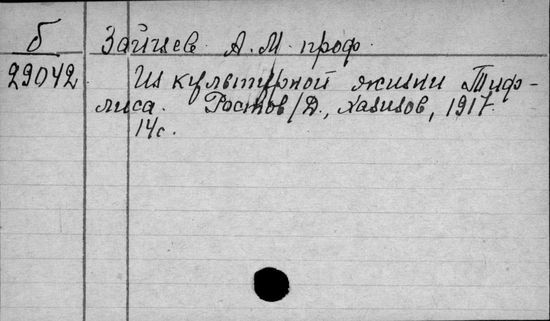 б Зайцев А. М. проф.
29042 Из культурной жизни Тиф-
лиса. Ростов/Д., Хазизов, 1917.
14с.